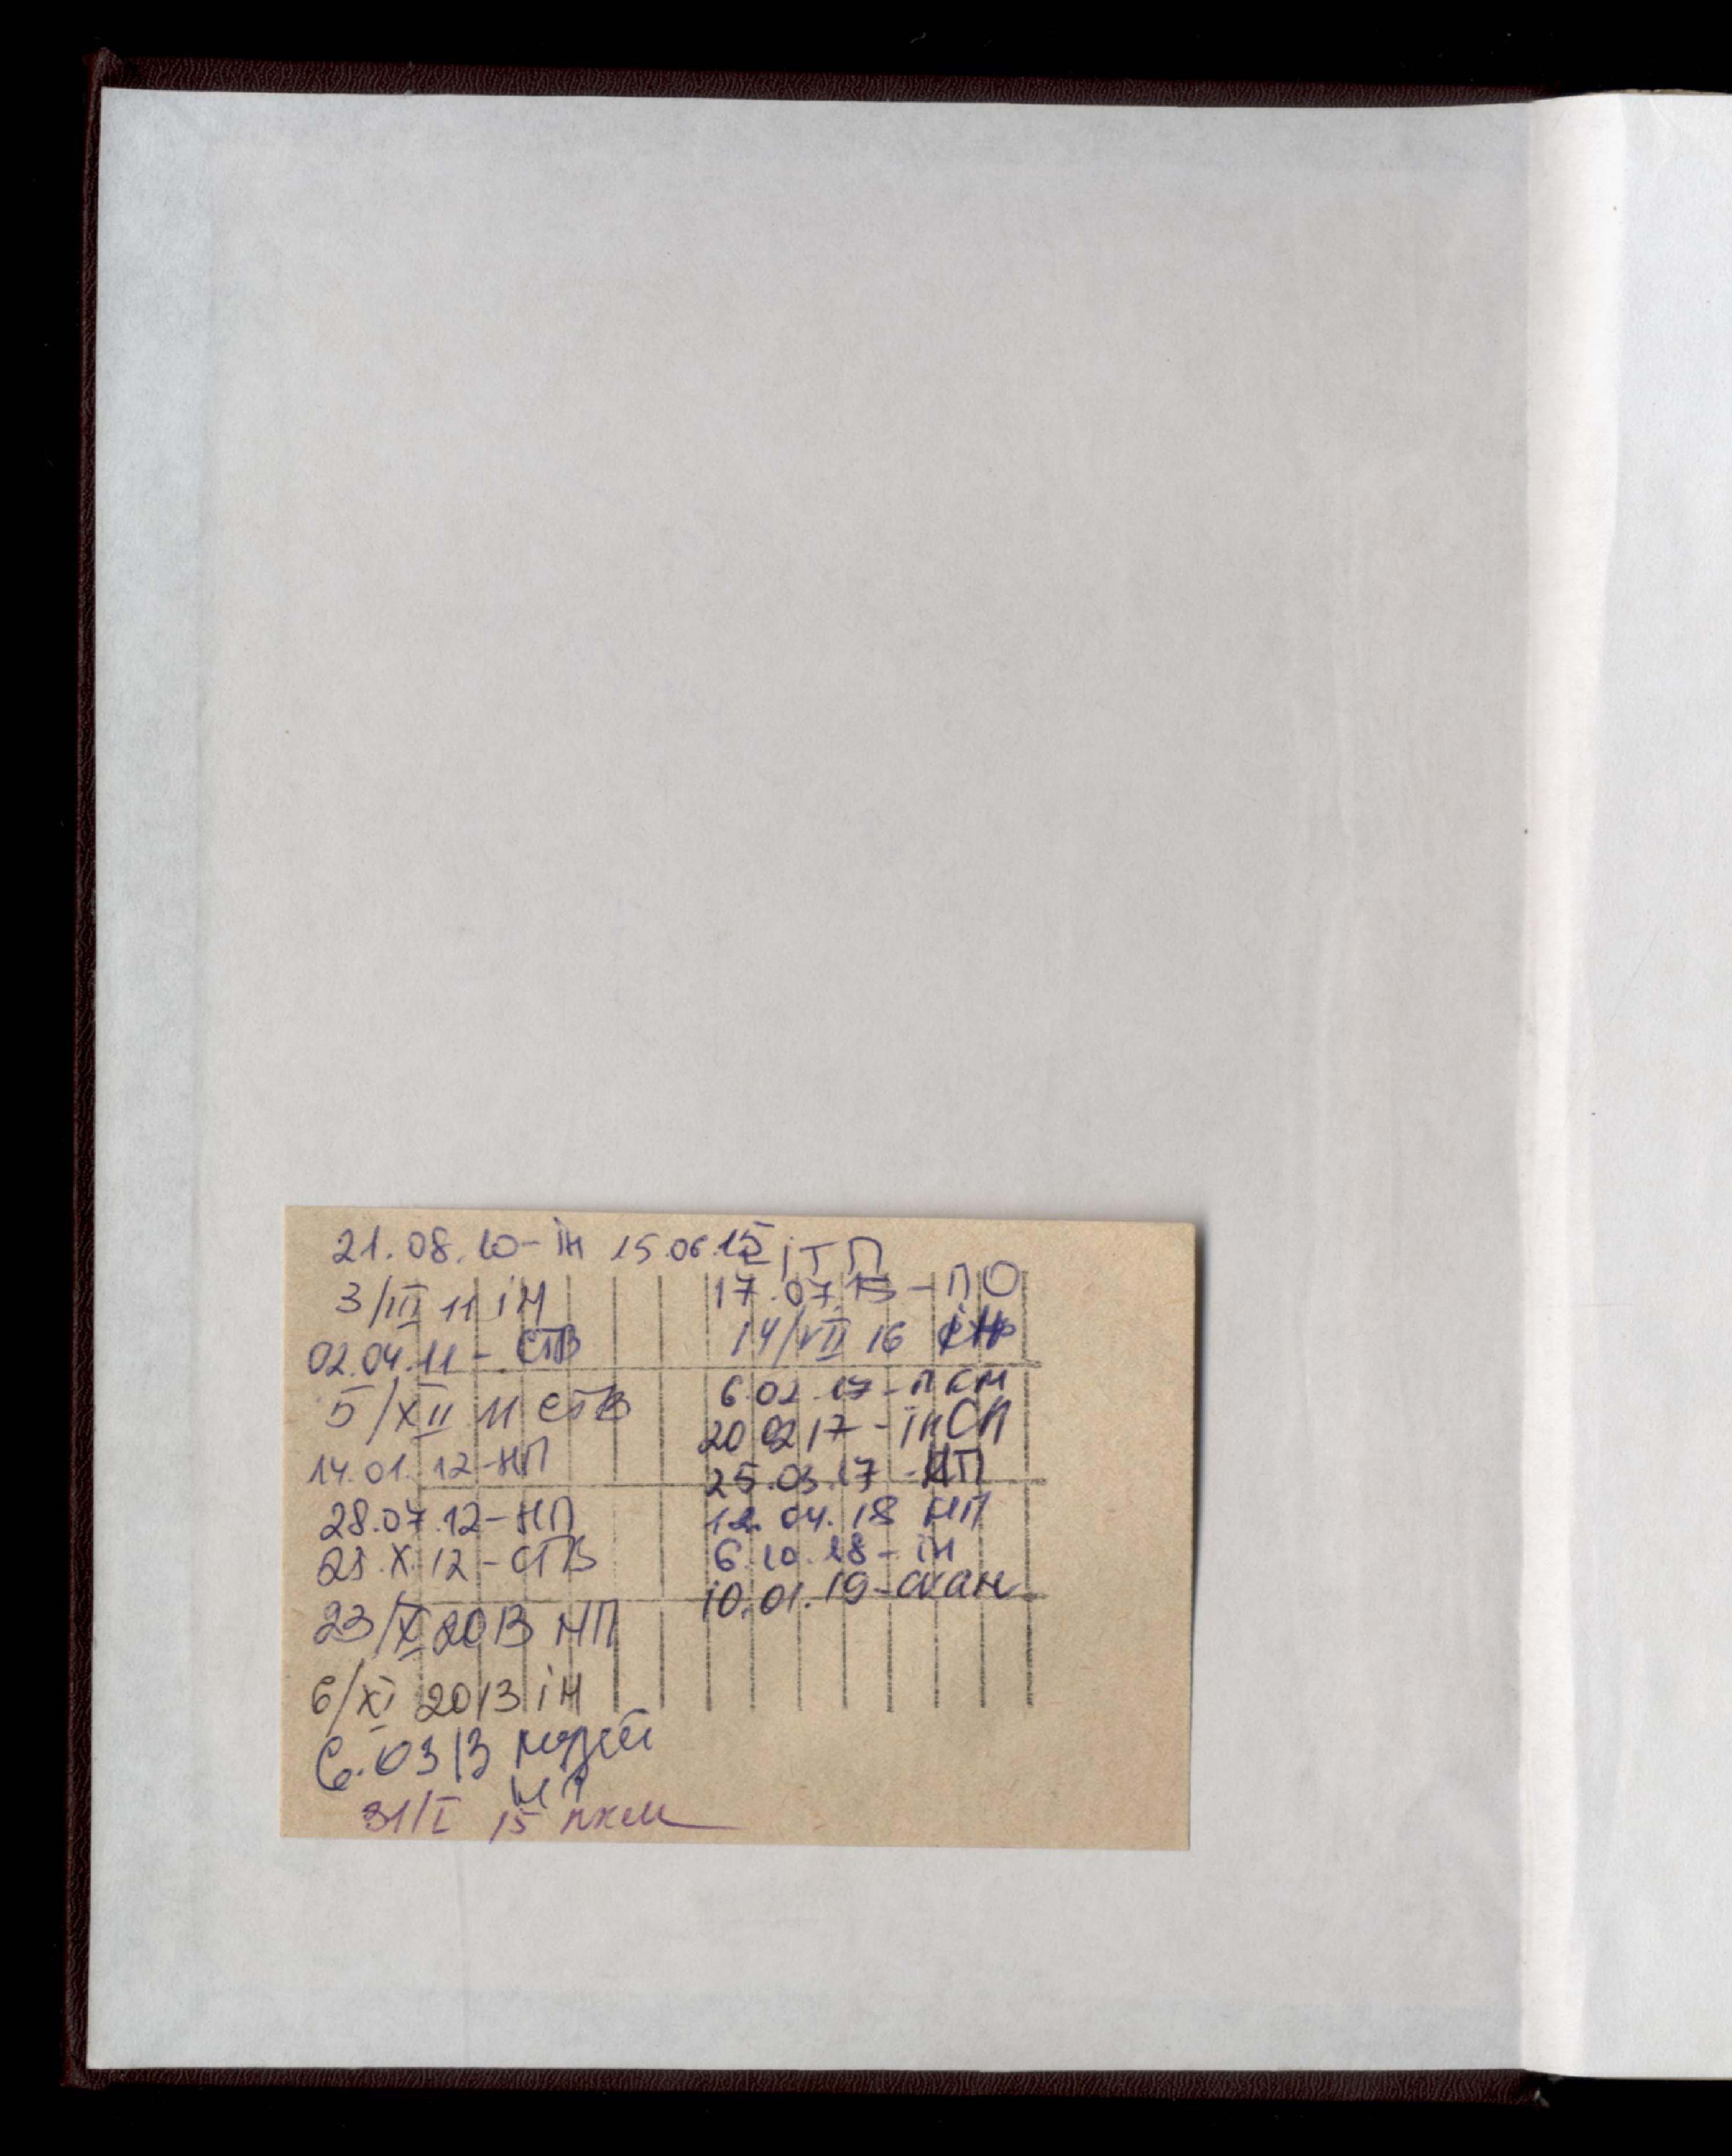 21.08.10 - ін
3/III 11 ін
02.04.11 - СТВ
5/XII 11 СТВ
14.01.12 - НП
28.07.12 - НП
23.X.12 - СТВ
23/X 2013 НП
6/XI 2013 ін
6.03 13
НП
31/I 15 пкм
15.06.15 іТП
17.07.15 - ПО
14/VII 16
6.02.17 - пкм
20 02 17 - інСП
25.03.17 - НП
12.04.18 НП
6.10.18 - ін
10.01.19 - скан